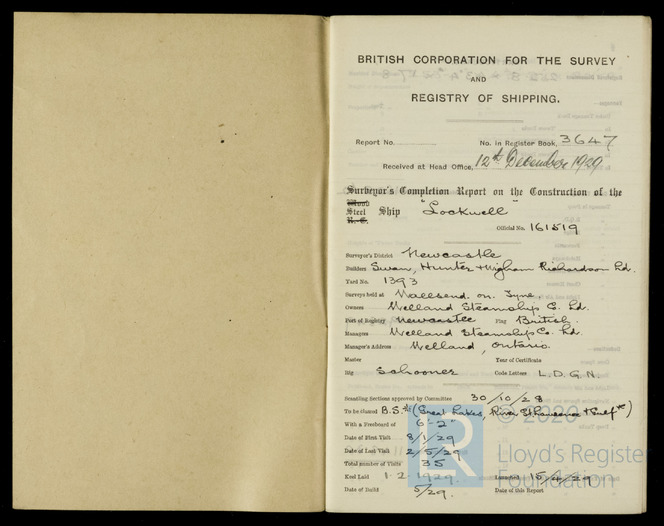 BRITISH CORPORATION FOR THE SURVEY
AND
REGISTRY OF SHIPPING.
Report No. No. in Register Book, 3647
Received at Head Office, 12th December 1929
Surveyor's Completion Report on the Construction of the
Wood
Steel Ship "Lockwell"
R.C.
Official No. 161519
Surveyor's District Newcastle
Builders Swan, Hunter & Wigham Richardson Ld.
Yard No. 1393
Surveys held at Wallsend on Tyne
Owners Welland Steamship C. Ld.
Port of Registry Newcastle Flag British.
Managers Welland Steamship Co. Ld.
Manager's Address Welland, Ontario.
Master Year of Certificate
Rig Schooner Code Letters L.D.G.N.
Scantling Sections approved by Committee 30/10/28
To be Classed B.S.* (Great Lakes, River St Lawrence & Gulf)
With a Freeboard of 6-2"
Date of First Visit 8/1/29
Date of Last Visit 2/5/29
Total number of Visits 35
Keel Laid 1.2.1929. Launched 15/4/29
Date of Build 5/29. Date of this Report
© 2020
LR
Lloyd's Register
Foundation